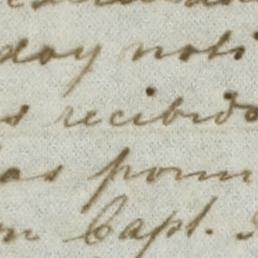 doy noti
s recibido
as porm
n Capt.